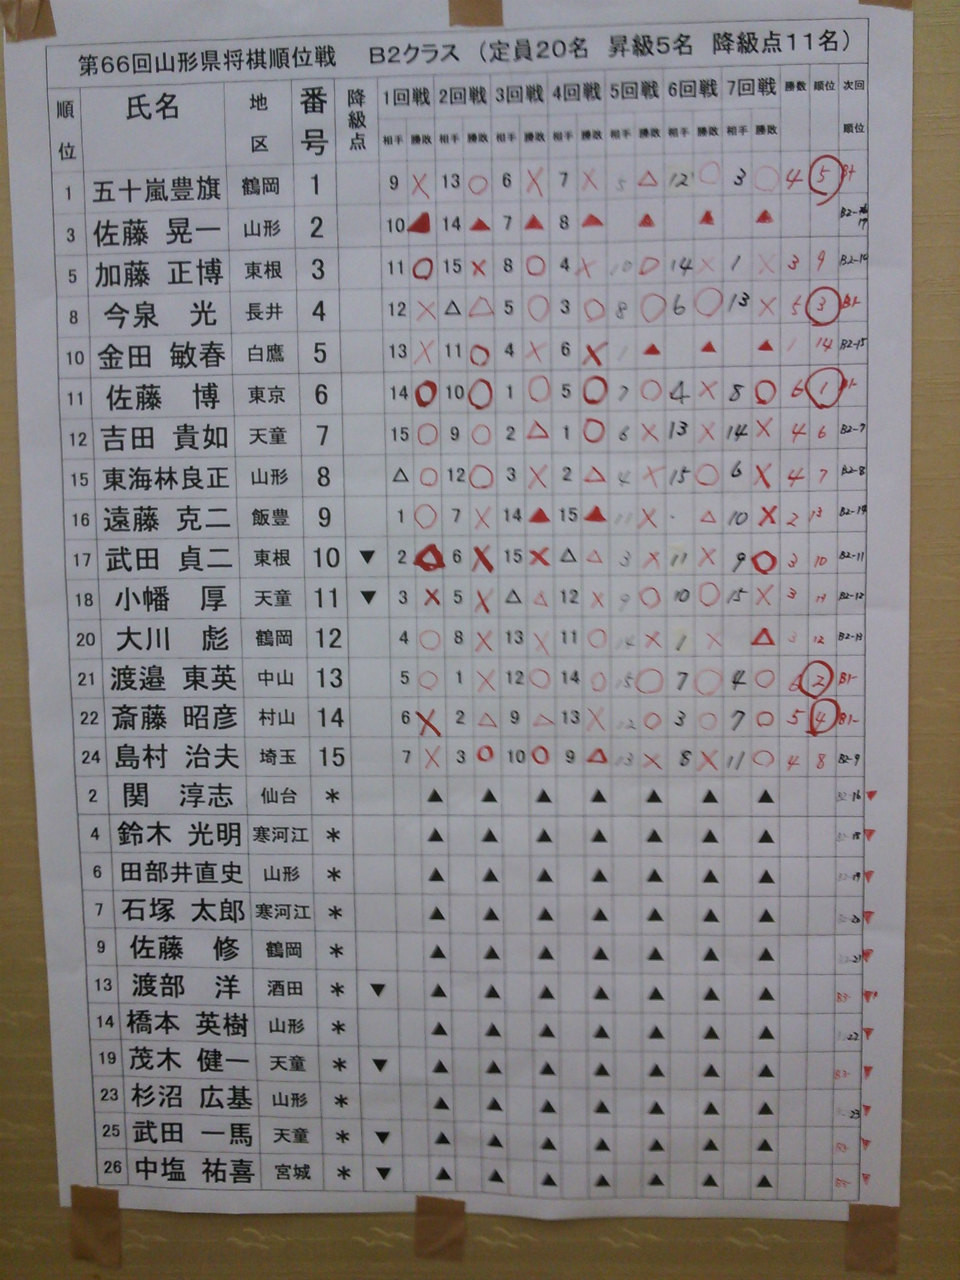 第66回山形県将棋順位戦 B2クラス (定員20名 昇級5名 降級点11名)
順位 氏名 地区 番号 降級点 1回戦 2回戦 3回戦 4回戦 5回戦 6回戦 7回戦 勝数 順位 次回順位
相手 勝敗 相手 勝敗 相手 勝敗 相手 勝敗 相手 勝敗 相手 勝敗 相手 勝敗
1 五十嵐豊旗 鶴岡 1 9 × 13 ○ 6 × 7 × 5 △ 12 ○ 3 ○ 4 5
3 佐藤 晃一 山形 2 10 ▲ 14 ▲ 7 ▲ 8 ▲ ▲ ▲ ▲
5 加藤 正博 東根 3 11 ○ 15 × 8 ○ 4 × 10 14 × 1 × 3 9
8 今泉 光 長井 4 12 × △ △ 5 ○ 3 ○ 8 ○ 6 ○ 13 × 5 3
10 金田 敏春 白鷹 5 13 × 11 ○ 4 × 6 × 1 ▲ ▲ ▲ 1 14 B2-15
11 佐藤 博 東京 6 14 ○ 10 ○ 1 ○ 5 ○ 7 ○ 4 × 8 ○ 6 1
12 吉田 貴如 天童 7 15 ○ 9 ○ 2 △ 1 ○ 6 × 13 × 14 × 4 6 B2-7
15 東海林良正 山形 8 △ ○ 12 ○ 3 × 2 △ 4 × 15 ○ 6 × 4 7 B2-8
16 遠藤 克二 飯豊 9 1 ○ 7 × 14 ▲ 15 ▲ 11 × △ 10 × 2 13 B2-14
17 武田 貞二 東根 10 ▼ 2 6 × 15 × △ △ 3 × 11 × 9 ○ 3 10 B2-11
18 小幡 厚 天童 11 ▼ 3 × 5 × △ △ 12 × 9 ○ 10 ○ 15 × 3 11 B2-12
20 大川 彪 鶴岡 12 4 ○ 8 × 13 × 11 ○ 14 × 1 × △ 3 12 B2-13
21 渡邉 東英 中山 13 5 ○ 1 × 12 ○ 14 ○ 15 ○ 7 ○ 4 ○ 6 2 B1-
22 斎藤 昭彦 村山 14 6 × 2 △ 9 △ 13 × 12 ○ 3 ○ 7 ○ 5 4 B1-
24 島村 治夫 埼玉 15 7 × 3 ○ 10 ○ 9 △ 13 × 8 × 11 ○ 4 8 B2-9
2 関 淳志 仙台 * ▲ ▲ ▲ ▲ ▲ ▲ ▲ B2-16 ▼
4 鈴木 光明 寒河江 * ▲ ▲ ▲ ▲ ▲ ▲ ▲ B2-18 ▼
6 田部井直史 山形 * ▲ ▲ ▲ ▲ ▲ ▲ ▲ B2-19 ▼
7 石塚 太郎 寒河江 * ▲ ▲ ▲ ▲ ▲ ▲ ▲ 20 ▼
9 佐藤 修 鶴岡 * ▲ ▲ ▲ ▲ ▲ ▲ ▲ 21 ▼
13 渡部 洋 酒田 * ▼ ▲ ▲ ▲ ▲ ▲ ▲ ▲ B3- ▼
14 橋本 英樹 山形 * ▲ ▲ ▲ ▲ ▲ ▲ ▲ 22 ▼
19 茂木 健一 天童 * ▼ ▲ ▲ ▲ ▲ ▲ ▲ ▲ B3- ▼
23 杉沼 広基 山形 * ▲ ▲ ▲ ▲ ▲ ▲ ▲ 23 ▼
25 武田 一馬 天童 * ▼ ▲ ▲ ▲ ▲ ▲ ▲ ▲ B3- ▼
26 中塩 祐喜 宮城 * ▼ ▲ ▲ ▲ ▲ ▲ ▲ ▲ B3- ▼